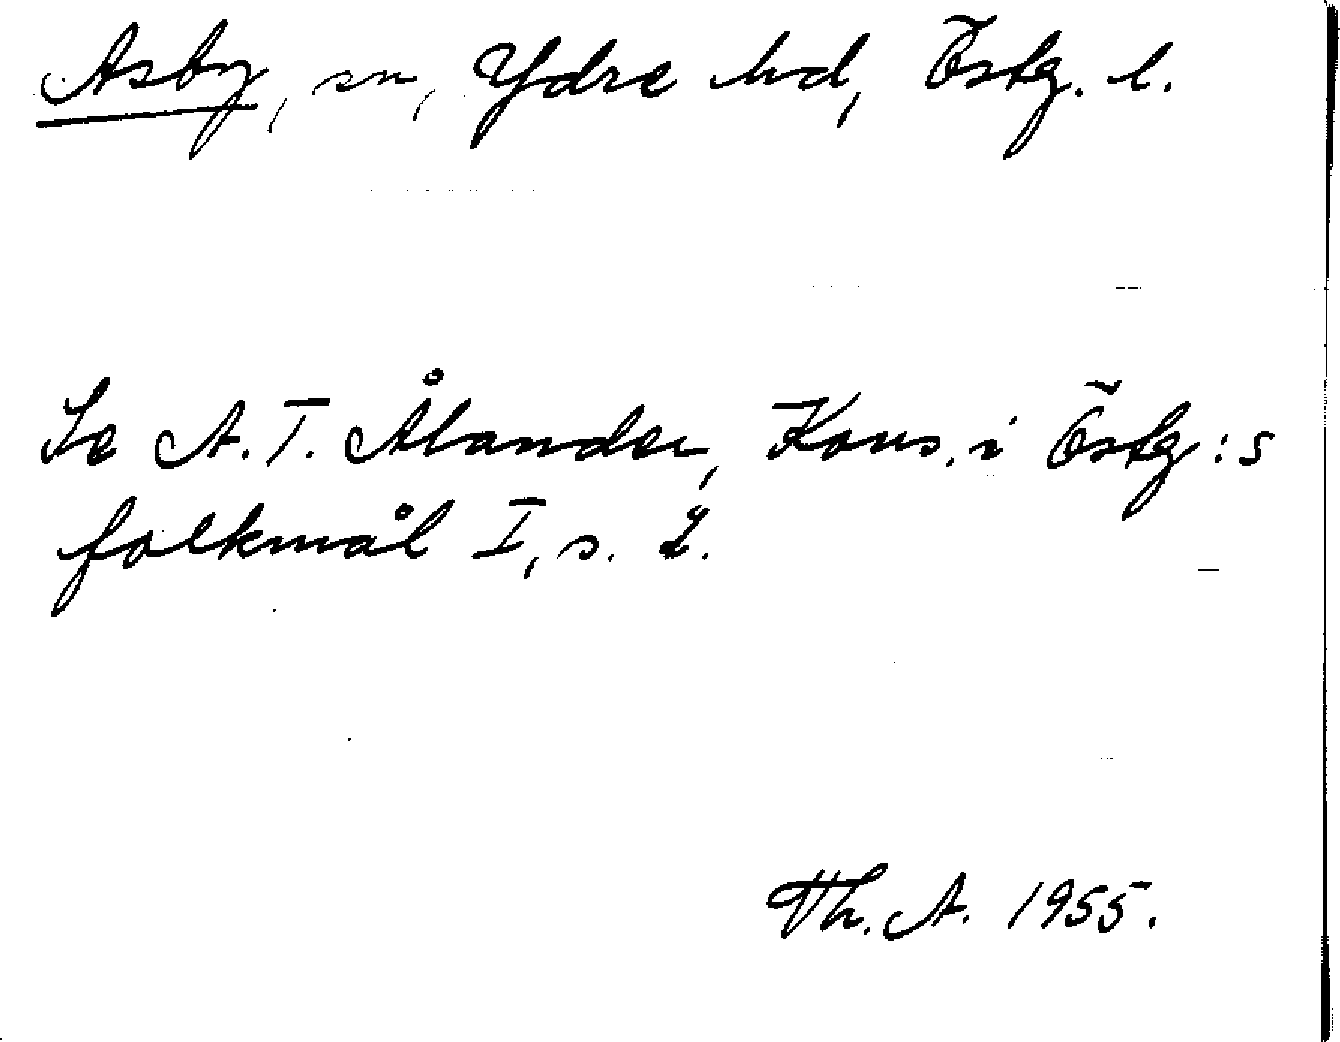 Asby, sn, Ydre hd, Östg. l.
Se A. T. Ålander, Kons. i Östg:s
folkmål I, s. 2.
Th. A. 1955.